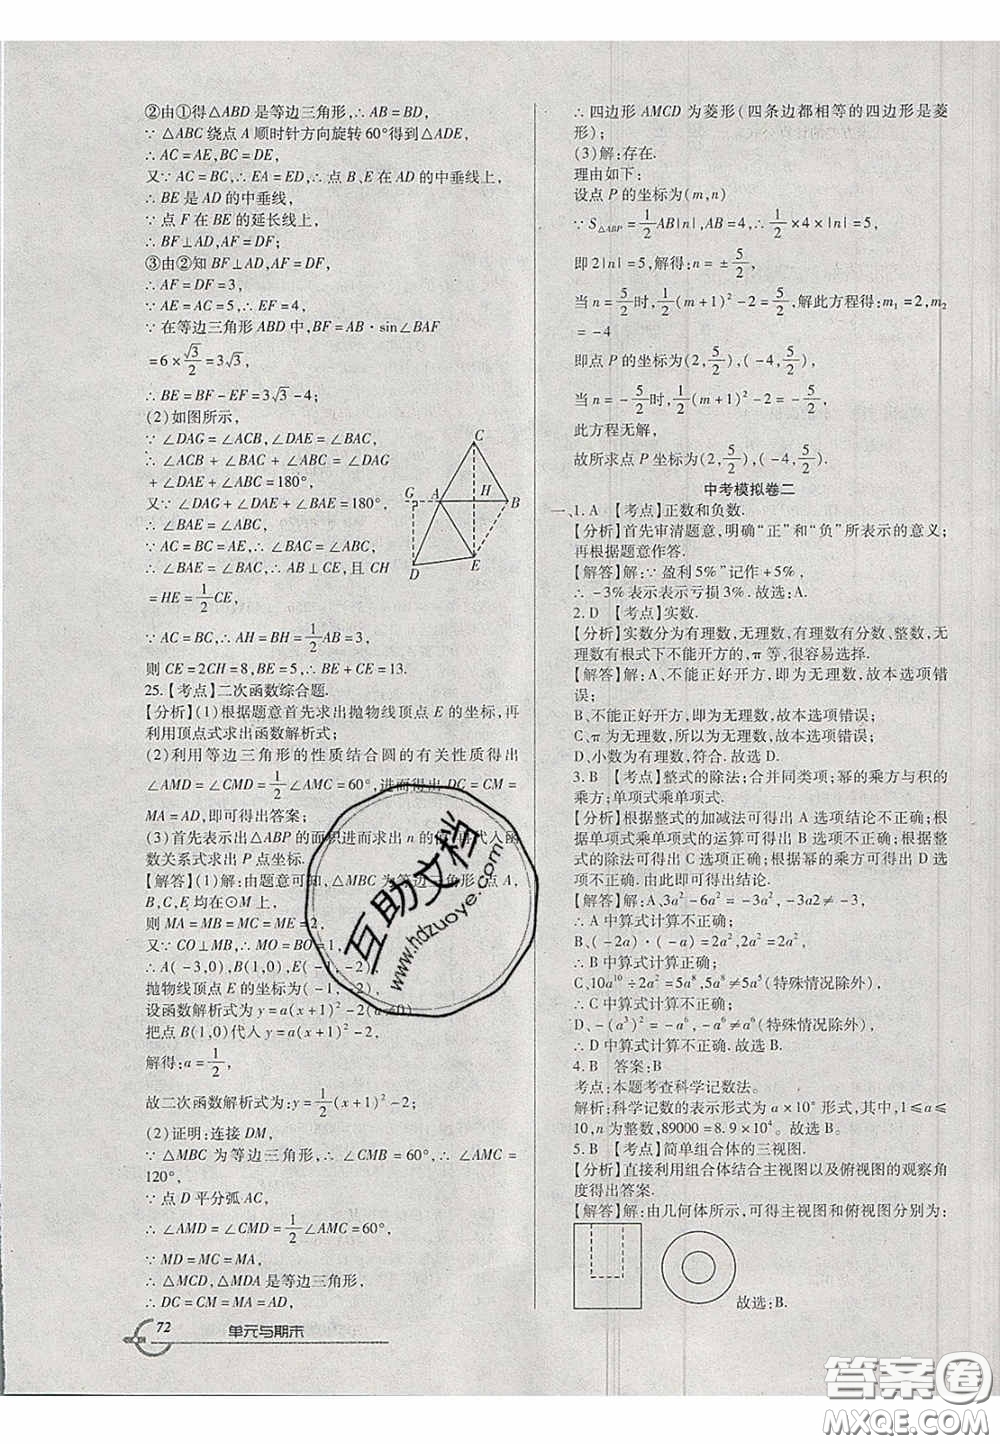 ②由①得△ABD 是等边三角形,∴AB=BD,
∵△ABC 绕点 A 顺时针方向旋转60°得到△ADE,
∴AC=AE,BC=DE,
又∵AC=BC,∴EA=ED,∴点 B、E 在 AD 的中垂线上,
∴BE 是 AD 的中垂线,
∵点 F 在 BE 的延长线上,
∴BF⊥AD,AF=DF;
③由②知 BF⊥AD,AF=DF,
∴AF=DF=3,
∵AE=AC=5,∴EF=4,
∵在等边三角形 ABD 中,BF=AB·sin∠BAF
=6×√3/2=3√3,
∴BE=BF-EF=3√3-4;
(2)如图所示,
∵∠DAG=∠ACB,∠DAE=∠BAC,
∴∠ACB+∠BAC+∠ABC=∠DAG
+∠DAE+∠ABC=180°,
又∵∠DAG+∠DAE+∠BAE=180°,
∴∠BAE=∠ABC,
∵AC=BC=AE,
∴∠BAE=∠BAC,∴AB⊥CE,且 CH
=HE=1/2CE,
∵AC=BC,∴AH=BH=1/2AB=3,
则 CE=2CH=8,BE=5,∴BE+CE=13.
G A H B C D E
25.【考点】二次函数综合题.
【分析】(1)根据题意首先求出抛物线顶点 E 的坐标,再
利用顶点式求出函数解析式;
(2)利用等边三角形的性质结合圆的有关性质得出
∠AMD=∠CMD=1/2∠AMC=60°,进而得出 DC=CM=
MA=AD,即可得出答案;
(3)首先表示出△ABP 的面积进而求出 n 的值,再代入函
数关系式求出 P 点坐标.
【解答】(1)解:由题意可知,△MBC 为等边三角形,点 A,
B,C,E 均在⊙M 上,
则 MA=MB=MC=ME=2,
又∵CO⊥MB,∴MO=BO=1,
∴A(-3,0),B(1,0),E(-1,-2),
抛物线顶点 E 的坐标为(-1,-2),
设函数解析式为 y=a(x+1)²-2(a≠0)
把点 B(1,0)代入 y=a(x+1)²-2,
解得:a=1/2,
故二次函数解析式为:y=1/2(x+1)²-2;
(2)证明:连接 DM,
∵△MBC 为等边三角形,∴∠CMB=60°,∴∠AMC=
120°,
∵点 D 平分弧 AC,
∴∠AMD=∠CMD=1/2∠AMC=60°,
∵MD=MC=MA,
∴△MCD,△MDA 是等边三角形,
∴DC=CM=MA=AD,
72 单元与期末
∴四边形 AMCD 为菱形(四条边都相等的四边形是菱
形);
(3)解:存在.
理由如下:
设点 P 的坐标为(m,n)
∵S△ABP=1/2AB|n|,AB=4,∴1/2×4×|n|=5,
即2|n|=5,解得:n=±5/2,
当 n=5/2时,1/2(m+1)²-2=5/2,解此方程得:m₁=2,m₂
=-4
即点 P 的坐标为(2,5/2),(-4,5/2),
当 n=-5/2时,1/2(m+1)²-2=-5/2,
此方程无解,
故所求点 P 坐标为(2,5/2),(-4,5/2).
中考模拟卷二
一、1.A 【考点】正数和负数.
【分析】首先审清题意,明确“正”和“负”所表示的意义;
再根据题意作答.
【解答】解:∵盈利5%”记作+5%,
∴-3%表示表示亏损3%.故选:A.
2.D 【考点】实数.
【分析】实数分为有理数,无理数,有理数有分数、整数,无
理数有根式下不能开方的,π等,很容易选择.
【解答】解:A、不能正好开方,即为无理数,故本选项错
误;
B、不能正好开方,即为无理数,故本选项错误;
C、π为无理数,所以为无理数,故本选项错误;
D、小数为有理数,符合.故选 D.
3.B 【考点】整式的除法;合并同类项;幂的乘方与积的
乘方;单项式乘单项式.
【分析】根据整式的加减法可得出 A 选项结论不正确;根
据单项式乘单项式的运算可得出 B 不正确;根据整
式的除法可得出 C 选项正确;根据幂的乘方可得出 D 选
项不正确.由此即可得出结论.
【解答】解:A、3a²-6a²=-3a²,-3a2≠-3,
∴A 中算式计算不正确;
B、(-2a)·(-a)=2a²,2a²=2a²,
∴B 中算式计算正确;
C、10a¹⁰÷2a²=5a⁸,5a⁸≠5a⁵(特殊情况除外),
∴C 中算式计算不正确;
D、-(a³)²=-a⁶,-a⁶≠a⁶(特殊情况除外),
∴D 中算式计算不正确.故选 B.
4.B 答案:B
考点:本题考查科学记数法.
解析:科学记数的表示形式为 a×10ⁿ 形式,其中,1≤a≤
10,n 为整数,89000=8.9×10⁴.故选 B.
5.B 【考点】简单组合体的三视图.
【分析】直接利用组合体结合主视图以及俯视图的观察角
度得出答案.
【解答】解:由几何体所示,可得主视图和俯视图分别为:
故选:B.
互助文档
www.hdzuoye.com
答案圈
MXQE.COM